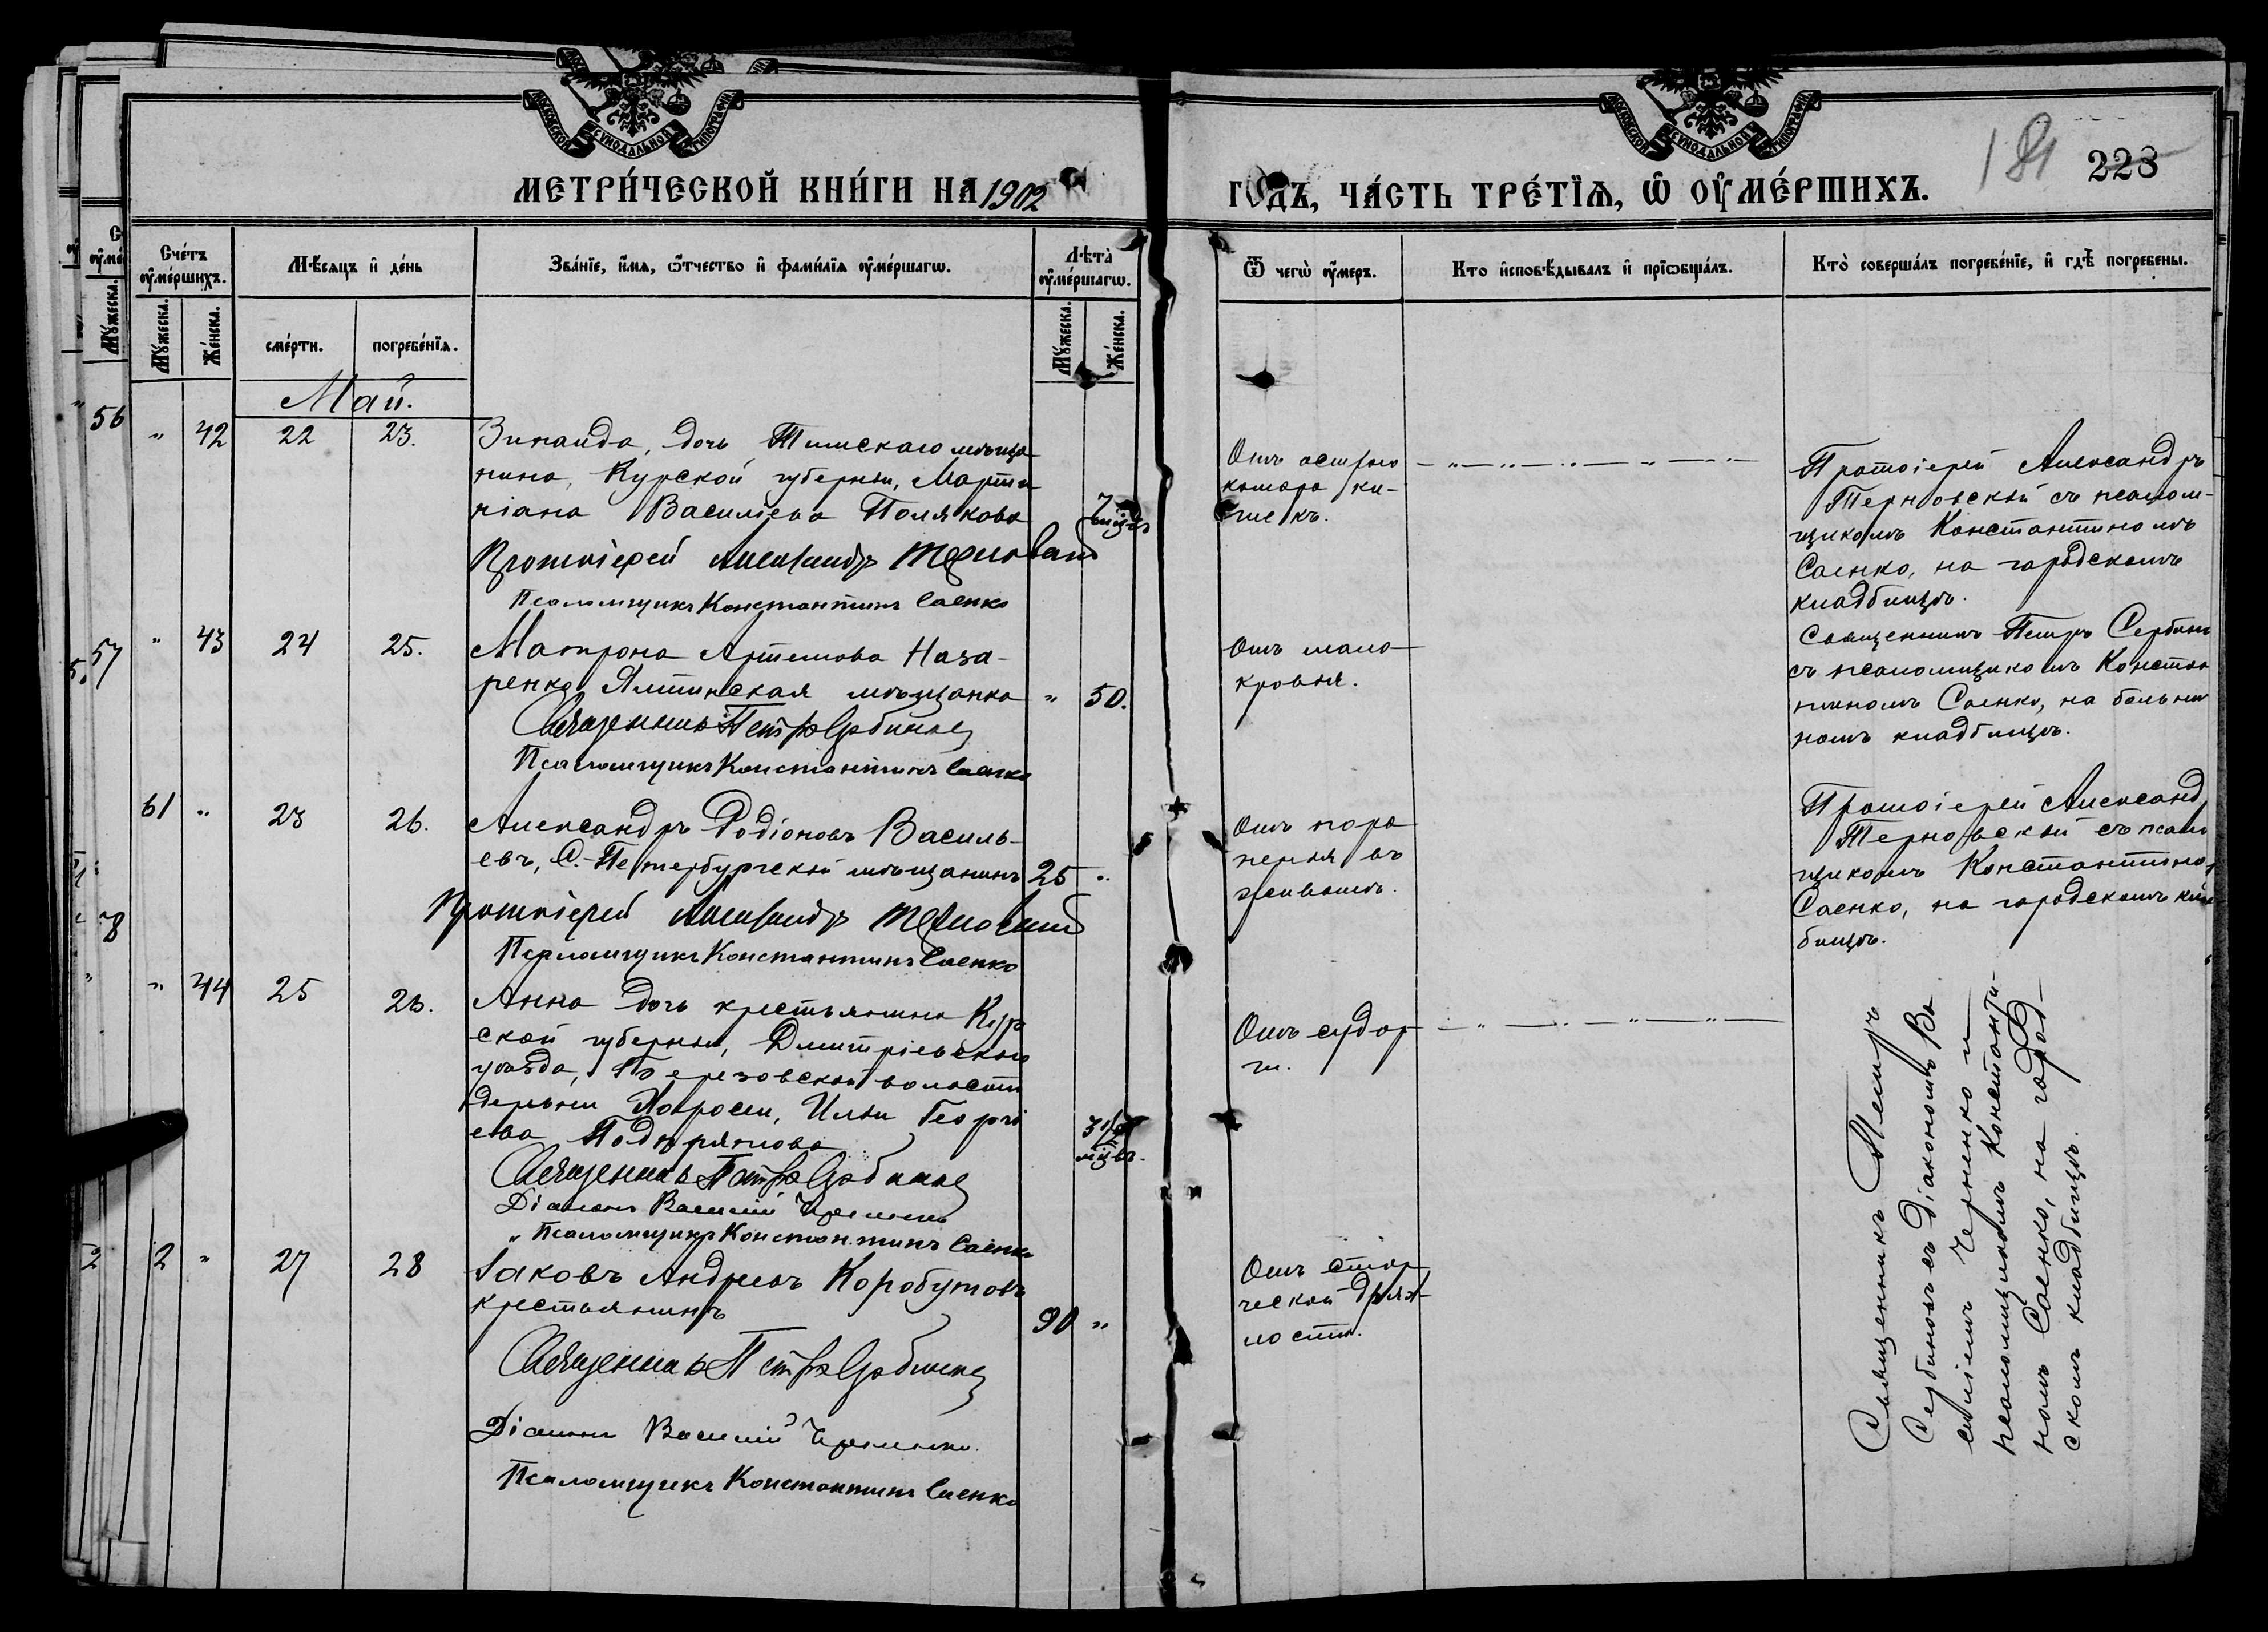 МОСКОВСКОЙ СѴНОДАЛЬНОЙ ТИПОГРАФІИ
МОСКОВСКОЙ СѴНОДАЛЬНОЙ ТИПОГРАФІИ
181 223
МЕТРИ́ЧЕСКОЙ КНИ́ГИ НА 1902 ГОДЪ, ЧА́СТЬ ТРЕ́ТЇѦ, Ѡ҆ ОУ҆МЕ́РШИХЪ.
Сче́тъ оу҆ме́ршихъ.
Мꙋ́жеска.
Же́нска.
Мѣ́сяцъ и҆ де́нь
сме́рти.
погребе́нїѧ.
Зва́нїе, и҆́мя, ѻ҆́тчество и҆ фами́лїѧ оу҆ме́ршагѡ.
Лѣта̀ оу҆ме́ршагѡ.
Мꙋ́жеска.
Же́нска.
Ѿ чегѡ̀ оу҆́меръ.
Кто̀ и҆сповѣ́дывалъ и҆ прїѡбща́лъ.
Кто̀ соверша́лъ погребе́нїе, и҆ гдѣ̀ погребены.
Май.
" 42 22 23.
Зинаида, дочь Тимскаго мѣща-
нина, Курской губерніи, Марти-
ніана Василіева Полякова
7 мѣс.
Протоіерей Александръ Терновскій
Псаломщикъ Константинъ Саенко
Отъ остраго
катара ки-
шекъ.
Протоіерей Александръ
Терновскій съ псалом-
щикомъ Константиномъ
Саенко, на городскомъ
кладбищѣ.
" 43 24 25.
Матрона Артемова Наза-
ренко, Ялтинская мѣщанка
" 50.
Священникъ Петръ Сербиновъ
Псаломщикъ Константинъ Саенко
Отъ мало-
кровія.
Священникъ Петръ Сербинъ
съ псаломщикомъ Констан
тиномъ Саенко, на больнич
номъ кладбищѣ.
61 " 23 26.
Александръ Родіоновъ Василь-
евъ, С.-Петербургскій мѣщанинъ
25 "
Протоіерей Александръ Терновскій
Псаломщикъ Константинъ Саенко
Отъ пора
ненія въ
животъ.
Протоіерей Александ
Терновскій съ псало
щикомъ Константино
Саенко, на городскомъ кла
бищѣ.
" 44 25 26.
Анна дочь крестьянина Кур
ской губерніи, Дмитріевскаго
уѣзда, Березовской волости
деревни Иліи Георгі
ева
3½ мѣс.
Священникъ Петръ Сербиновъ
Діаконъ Василій Черненко
Псаломщикъ Константинъ Саенко
Отъ судор
ги.
Священникъ Петръ
Сербиновъ съ Діакономъ Ва
силіемъ Черненко и
псаломщикомъ Константи-
номъ Саенко, на город-
скомъ кладбищѣ.
2 " 27 28
Іаковъ Андреевъ Коробутовъ
крестьянинъ
90 "
Священникъ Петръ Сербиновъ
Діаконъ Василій Черненко.
Псаломщикъ Константинъ Саенко
Отъ стар
ческой дрях-
лости.
56
57